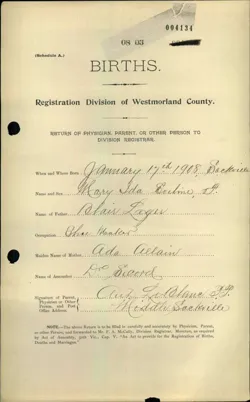 006134
08 03
(Schedule A.)
BIRTHS.
Registration Division of Westmorland County.
RETURN OF PHYSICIAN, PARENT, OR OTHER PERSON TO
DIVISION REGISTRAR.
When and Where Born January 17th 1908, Sackville
Name and Sex Mary Ida F.
Name of Father Blair Leger
Occupation Shoe Maker
Maiden Name of Mother Ada Allain
Name of Accoucheur Dr Secord
Signature of Parent,
Physician or Other
Person, and Post
Office Address
LeBlanc
Middle Sackville
NOTE.—The above Return is to be filled in carefully and accurately by Physician, Parent,
or other Person, and forwarded to Mr. F. A. McCully, Division Registrar, Moncton, as required
by Act of Assembly, 50th Vic., Cap. V. "An Act to provide for the Registration of Births,
Deaths and Marriages."